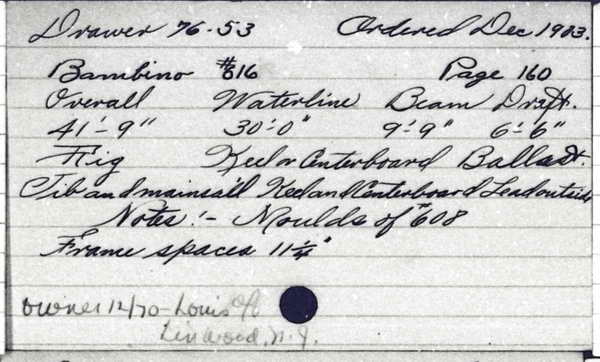 Drawer 76-53 Ordered Dec 1903.
Bambino #616 Page 160
Overall Waterline Beam Draft.
41'-9" 30'-0" 9'-9" 6'-6"
Rig Keel or Centerboard Ballast.
Jib and mainsail Keel and Centerboard Lead outside
Notes:- Moulds of #608
Frame spaces 11¼"
owner 12/70-Louis
Linwood, N.J.